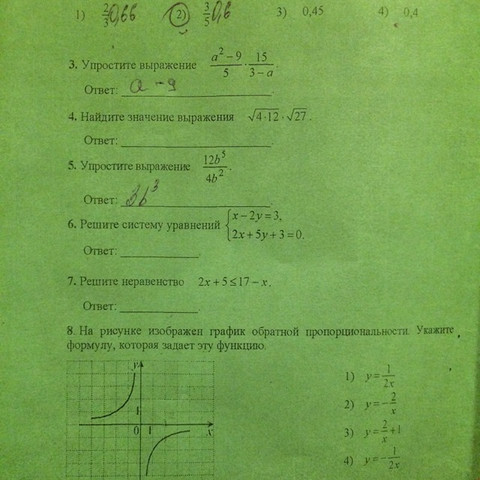 1) 2/3 0,66 2) 3/5 0,6 3) 0,45 4) 0,4
3. Упростите выражение (a² − 9)/5 · 15/(3 − a)
Ответ: a − 9
4. Найдите значение выражения √(4·12) · √27 .
Ответ:
5. Упростите выражение 12b⁵/4b² .
Ответ: 3b³
6. Решите систему уравнений { x − 2y = 3,
2x + 5y + 3 = 0.
Ответ:
7. Решите неравенство 2x + 5 ≤ 17 − x.
Ответ:
8. На рисунке изображен график обратной пропорциональности. Укажите
формулу, которая задает эту функцию.
y
1
0 1 x
1) y = 1/2x
2) y = −2/x
3) y = 2/x + 1
4) y = −1/2x